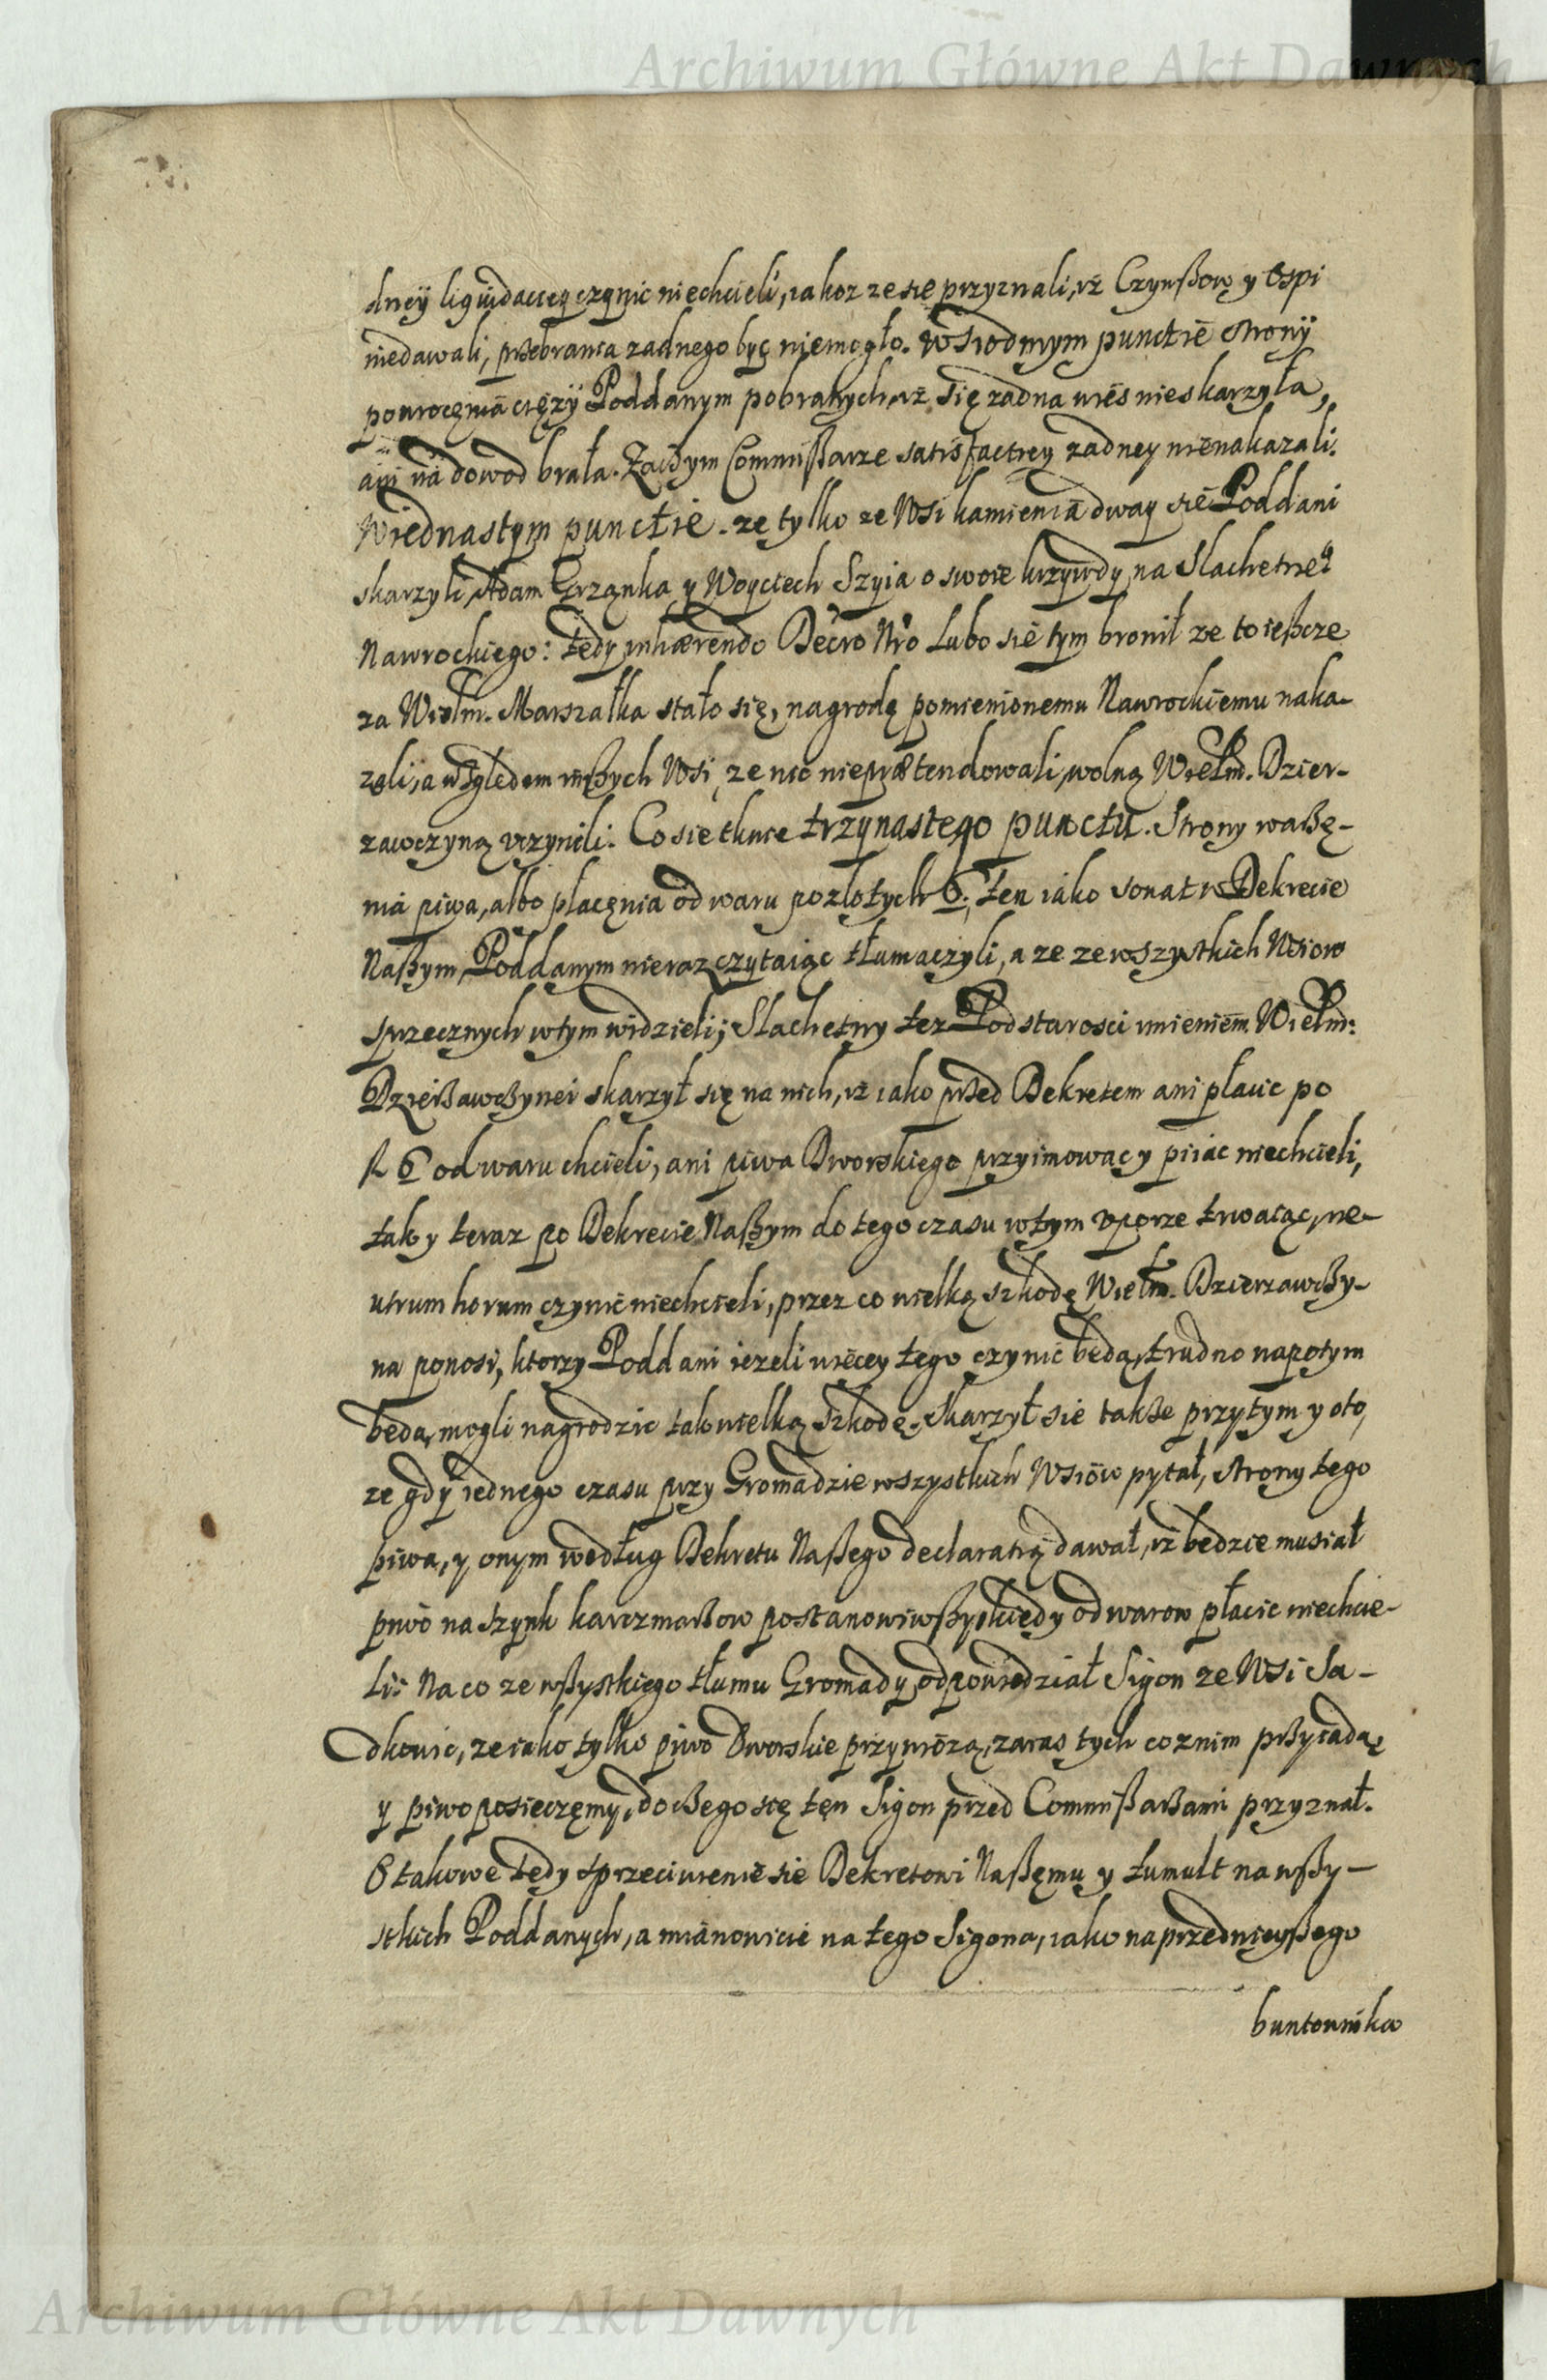 Archiwum Główne Akt Dawnych
dneÿ liquidacieÿ czynic niechcieli, iakoz ze się przyznali, iż Czynßow y Ospi
niedawali, przebrania zadnego być niemogło. W siodmym punctie strony
powrocęnia ciężÿ Poddanym pobranych, iż się zadna wieś nieskarzyła,
ani na dowod brała. Zaczym Commißarze satisfactiey zadney nienakazali.
Wiednastym punctie. ze tylko ze Wsi kamienia dway się Poddani
skarzyli, Adam Grząnka y Woyciech Szyia o swoie krzywdy na Slachetneº
Nawrockiego: tedy inhærendo Decro Nro Lubo się tym bronił ze to ießcze
za Wielm. Marszałka stało się, nagrodę pomienionemu Nawrockiemu naka-
zali, a względem inßych Wsi, ze nic nieprætendowali, wolną Wielm. Dzier-
zawczyną vczynili. Co sie tknie trzynastego punctu. Strony waßę-
nia piwa, albo płacęnia od waru pozłotych 6. ten iako sonat w Dekrecie
Naßym, Poddanym nieraz czytaiąc tłumaczyli, a ze ze wszystkich Wsiow
sprzecznych w tym widzieli; Slachetny tez Podstarosci imieniem Wielm:
Dzierßawcßynei skarzył się na nich, iż iako przed Dekretem ani płacic po
fl 6 od waru chcieli, ani piwa Dworskiego przyimowac y piiac niechcieli,
tak y teraz po Dekrecie Naßym do tego czasu w tym vporze trwaiąc, ne-
utrum horum czynic niechcieli, przez co wielką szkodę Wielm. Dzierzawcßy-
na ponosi, ktorzy Poddani iezeli więcey tego czynic będą, trudno napotym
będą mogli nagrodzic tak wielką szkodę. Skarzył się takße przytym y oto,
ze gdy iednego czasu przy Gromadzie wszystkich Wsiow pytał, strony tego
piwa, y onym według Dekretu Naßego declaratią dawał, iż będzie musiał
piwo na szynk karczmarßow postanowiwßy, kiedy od warow płacic niechcie-
li: Na co ze wßystkiego tłumu Gromady odpowiedział Sigon ze Wsi Sa-
dkowic, ze iako tylko piwo Dworskie przywiozą, zaras tych co z nim przyiadą
y piwo posieczęmy, do cßego się ten Sigon przed Commißarßami przyznał.
O takowe tedy sprzeciwienie sie Dekretowi Naßęmu y tumult na wßy-
stkich Poddanych, a mianowicie na tego Sigona, iako naprzednieyßego
buntownika
Archiwum Główne Akt Dawnych